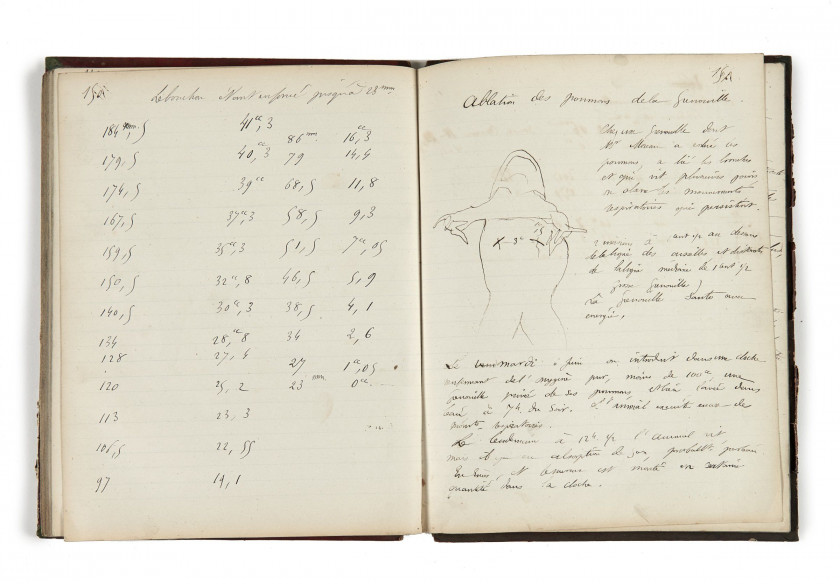 Le bouchon étant enfoncé jusqu'à 23 mm
184 mm,5 41cc,3
86 mm 16cc,3
179,5 40cc,3 79 14,4
174,5 39cc 68,5 11,8
167,5 37cc,3 58,5 9,3
159,5 35cc,3 51,5 7cc,05
150,5 32cc,8 46,5 5,9
140,5 30cc,3 38,5 4,1
134 28,cc8 34 2,6
128 27,4
27 1cc,05
120 25,2 23 mm 0cc
113 23,3
106,5 22,55
97 19,1
Ablation des poumons de la Grenouille.
Chez une Grenouille dont
Mr Moreau a enlevé les
poumons, a lié les bronches
et qui vit plusieurs jours
on observe les mouvements
respiratoires qui persistent.
X-3c X
de la ligne des aisselles et distants
de la ligne médiane de 1 cent 1/2
grosse Grenouille)
La Grenouille saute avec
énergie.
Le mardi juin on introduit dans une cloche
renfermant de l'oxygène pur, moins de 100cc une
Grenouille privée de ses poumons
à 7h. du soir. l'animal exécute encore des
mouvts respiratoires.
Le lendemain à 12h 1/2 l'animal vit
mais il y a eu absorption de gaz, probablt
et le mercure est monté en certaine
quantité dans la cloche.